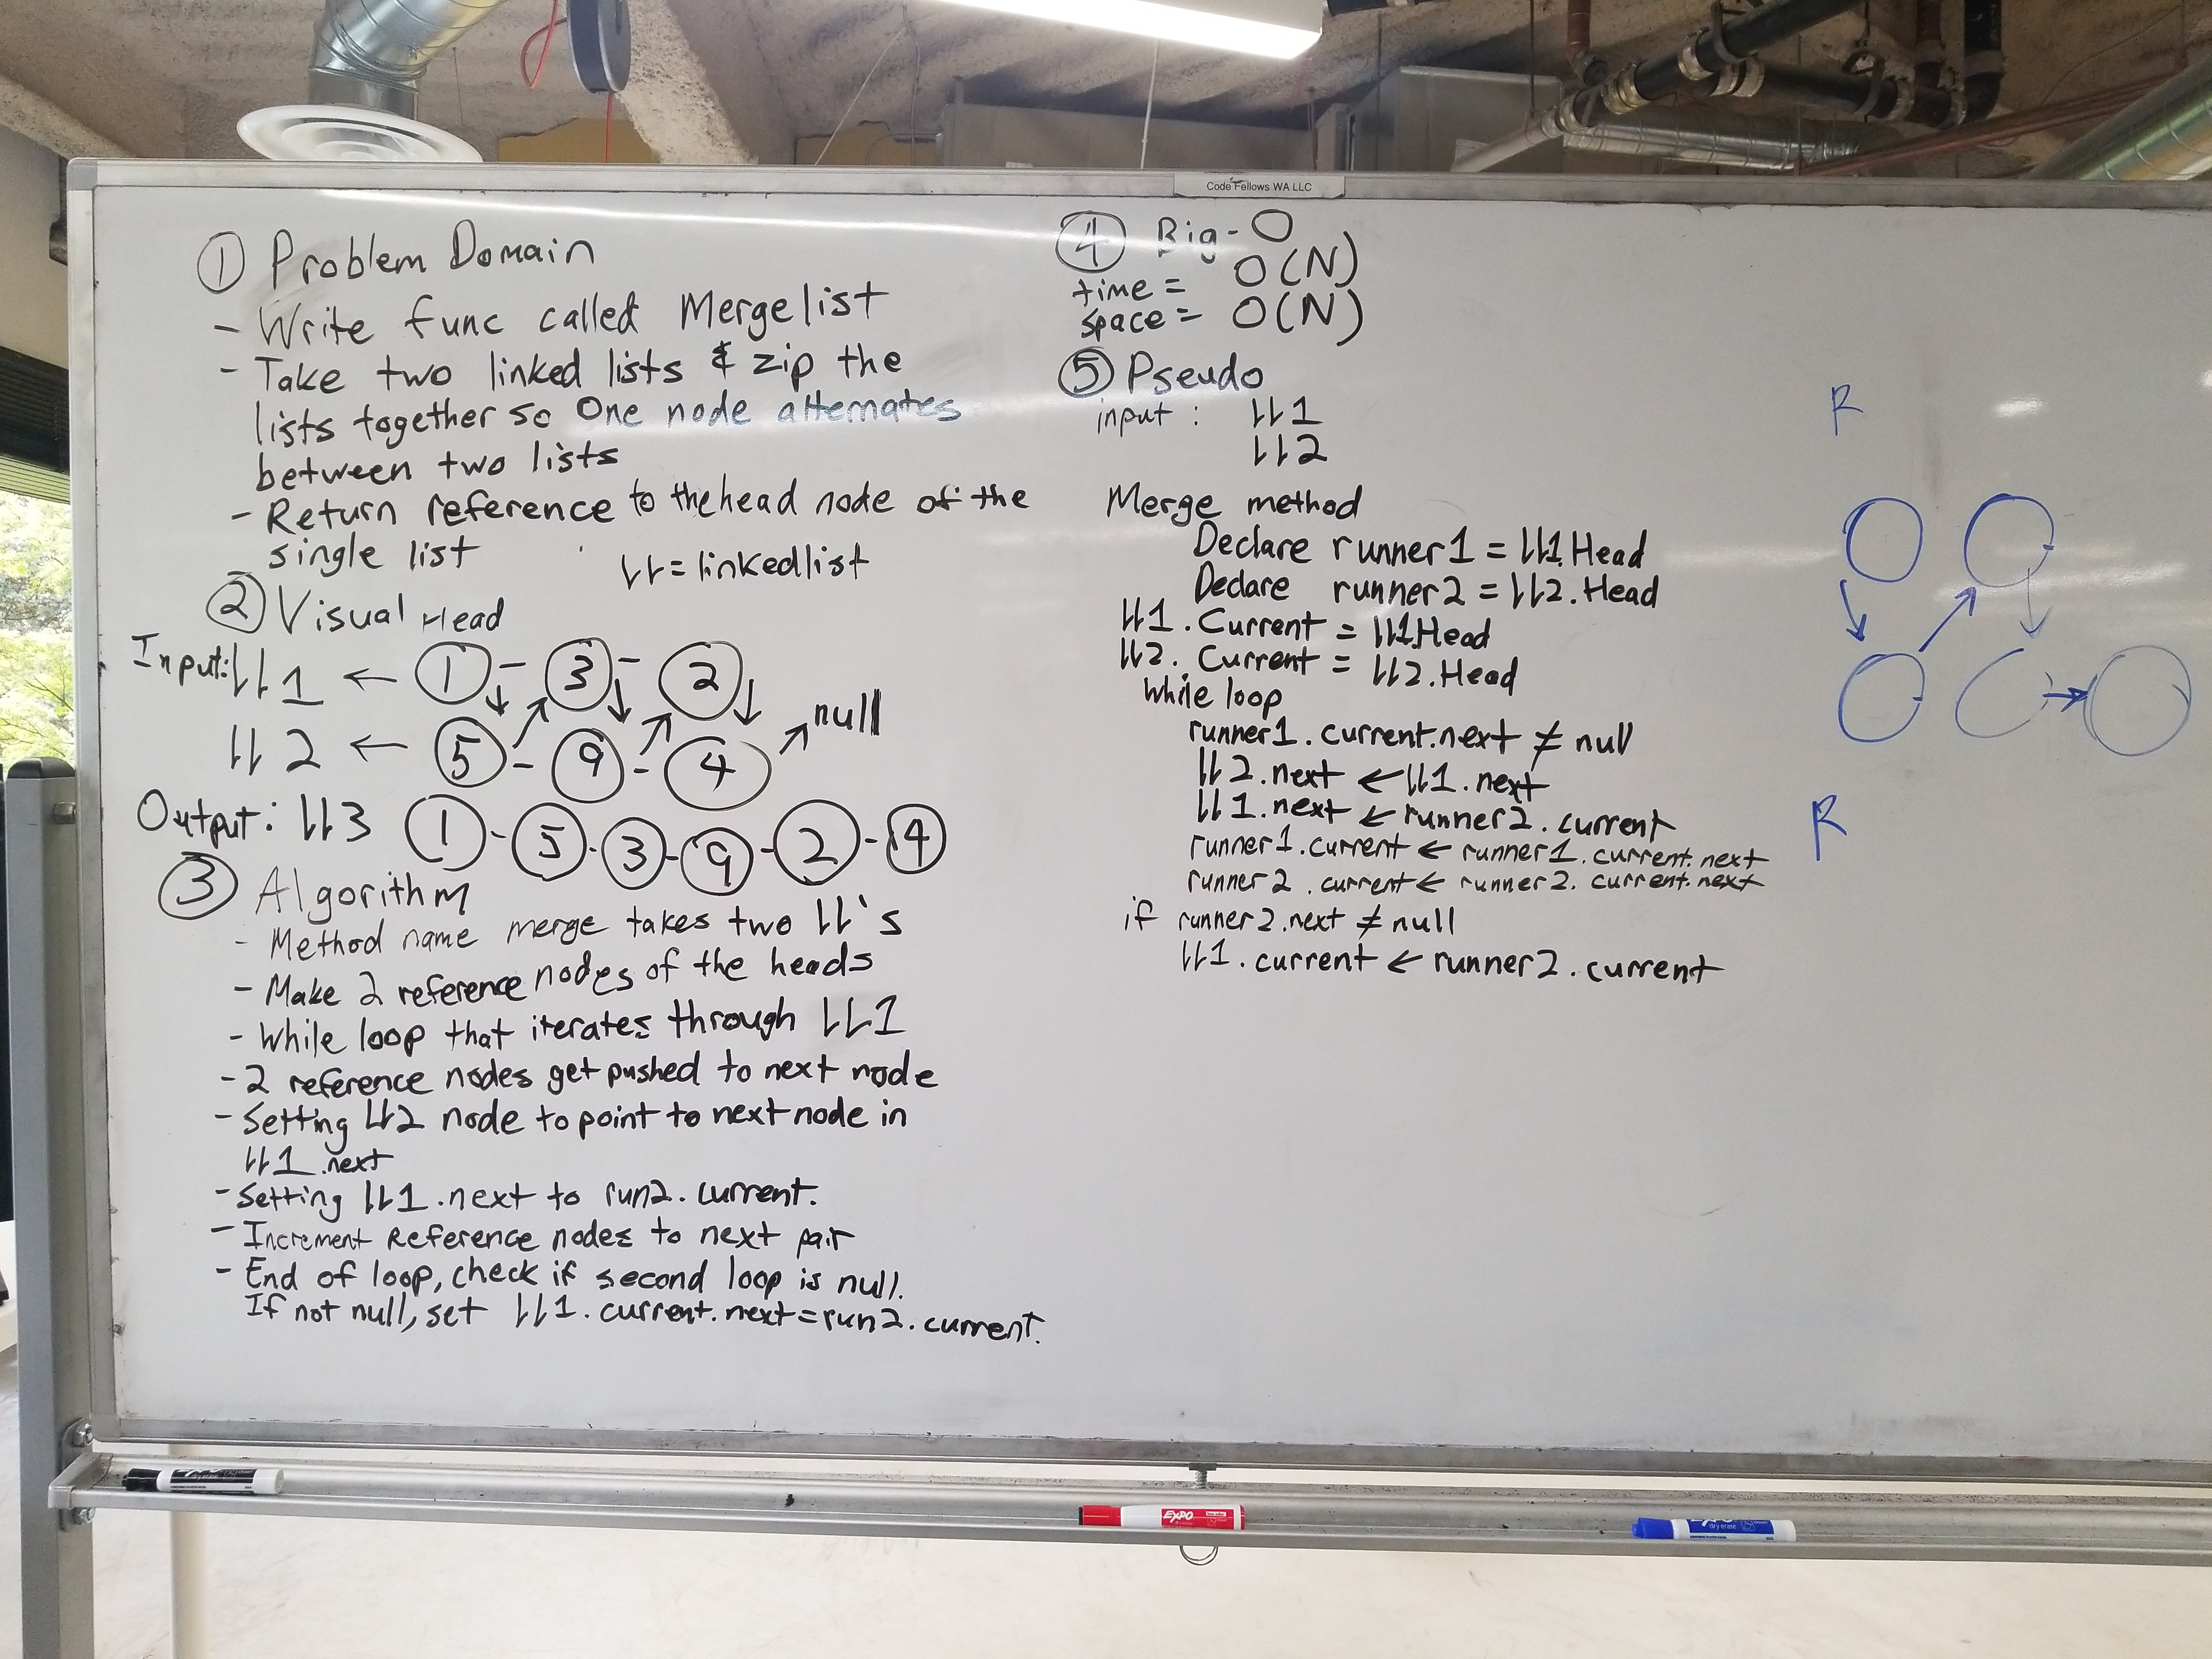 Code Fellows WA LLC
① Problem Domain
- Write func called Mergelist
- Take two linked lists & zip the
lists together so One node alternates
between two lists
- Return reference to the head node of the
single list
LL = linkedlist
② Visual Head
Input: LL1 ← ① - ③ - ②
null
LL2 ← ⑤ - ⑨ - ④
Output: LL3 ① - ⑤ - ③ - ⑨ - ② - ④
③ Algorithm
- Method name merge takes two LL's
- Make 2 reference nodes of the heads
- While loop that iterates through LL1
- 2 reference nodes get pushed to next node
- Setting LL2 node to point to next node in
LL1.next
- Setting LL1.next to run2.current.
- Increment Reference nodes to next pair
- End of loop, check if second loop is null.
If not null, set LL1.current.next = run2.current.
④ Big-O
time = O(N)
space = O(N)
⑤ Pseudo
input: LL1
LL2
Merge method
Declare runner1 = LL1.Head
Declare runner2 = LL2.Head
LL1.Current = LL1.Head
LL2.Current = LL2.Head
while loop
runner1.current.next ≠ null
LL2.next ← LL1.next
LL1.next ← runner2.current
runner1.current ← runner1.current.next
runner2.current ← runner2.current.next
if runner2.next ≠ null
LL1.current ← runner2.current
R
R
EXPO
EXPO
dry erase